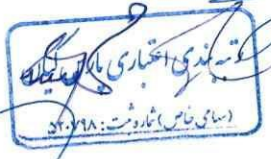 رتبه‌بندی اعتباری پارس کیان
(سهامی خاص) شماره ثبت: ۵۲۰۷۹۸